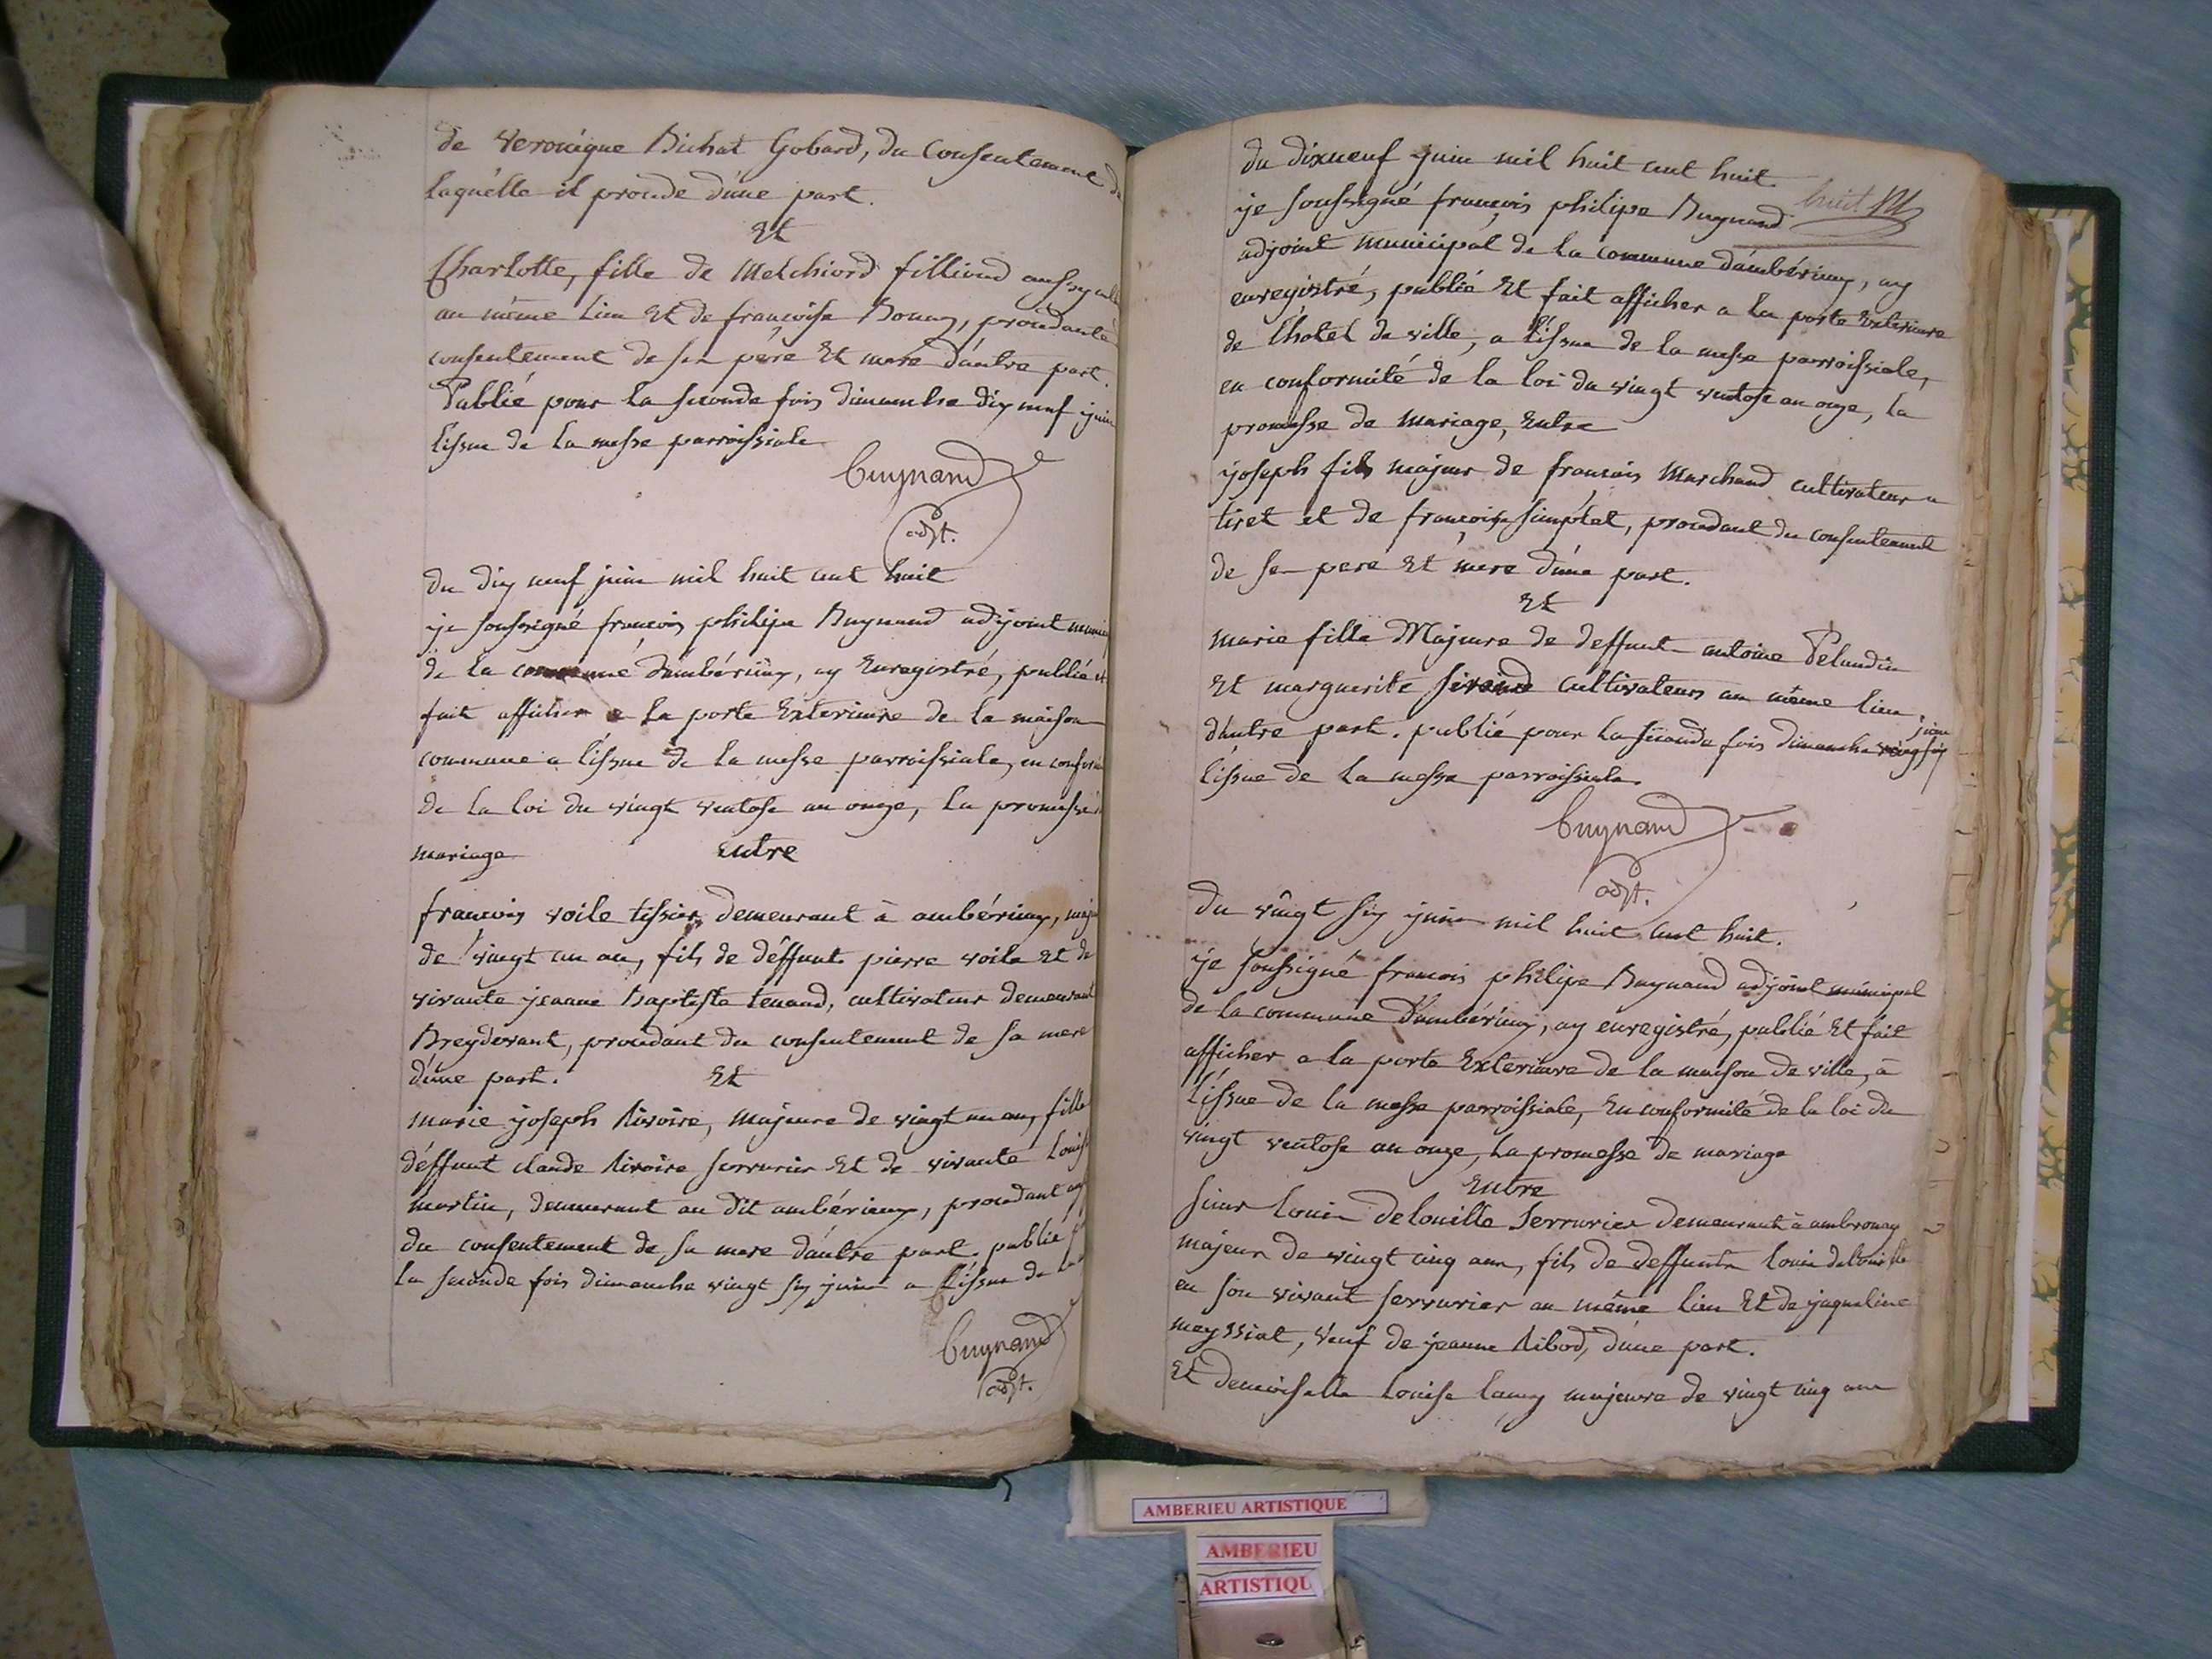 de veronique Bichat Gobard, du Consentement de
laquelle il procede d'une part.
Et
Charlotte, fille de Melchiord filliond aussy
au même lieu Et de francoise Bonny, procedante
consentement de ses père Et mere d'autre part.
Publié pour la seconde fois dimanche dix neuf juin
l'issue de la messe parroissiale
Buynand
adjt.
du dix neuf juin mil huit cent huit
je soussigné francois philipe Buynand adjoint
de la commune d'ambérieux, ay Enregistré, publié et
fait afficher a la porte Exterieure de la maison
commune a l'issue de la messe parroissiale, en
de la loi du vingt ventose an onze, la promesse
mariage Entre
francois voile tissier demeurant à ambérieux,
de vingt un an, fils de déffunt pierre voile Et de
vivante jeanne Baptiste tenand, cultivateur demeurant
Breydevant, procedant du consentement de sa mere
d'une part. Et
marie joseph Rivoire, majeure de vingt un an, fille
déffunt claude Rivoire serrurier Et de vivante Louise
martin, demeurant au dit ambérieux, procedant
du consentement de sa mere d'autre part. publié
la seconde fois dimanche vingt six juin a l'issue de
Buynand
adjt.
du dixneuf juin mil huit cent huit.
huit
je soussigné francois philipe Buynand
adjoint municipal de la commune d'ambérieux, ay
enregistré, publié Et fait afficher a la porte Exterieure
de l'hotel de ville, a l'issue de la messe parroissiale,
en conformité de la loi du vingt ventose an onze, la
promesse de mariage, Entre
joseph fils majeur de francois Marchand cultivateur a
tiret et de francoise simplet, procedant du consentement
de ses pere Et mere d'une part.
Et
marie fille Majeure de deffunt antoine Pelandin
Et marguerite sirand cultivateurs au même lieu,
d'autre part. publié pour la seconde fois dimanche vingt six
juin
l'issue de la messe parroissiale.
Buynand
adjt.
Du vingt six juin mil huit cent huit.
je soussigné francois philipe Buynand adjoint municipal
de la commune d'ambérieux, ay enregistré, publié Et fait
afficher a la porte Exterieure de la maison de ville, à
l'issue de la messe parroissiale, En conformité de la loi du
vingt ventose an onze, la promesse de mariage
Entre
sieur Louis delouille serrurier demeurant à ambronay
majeur de vingt cinq ans, fils de deffunts Louis delouille
en son vivant serrurier au même lieu Et de jaqueline
meyssiat, veuf de jeanne Ribod, d'une part.
Et demoiselle Louise lamy majeure de vingt cinq ans
AMBERIEU ARTISTIQUE
AMBERIEU
ARTISTIQU